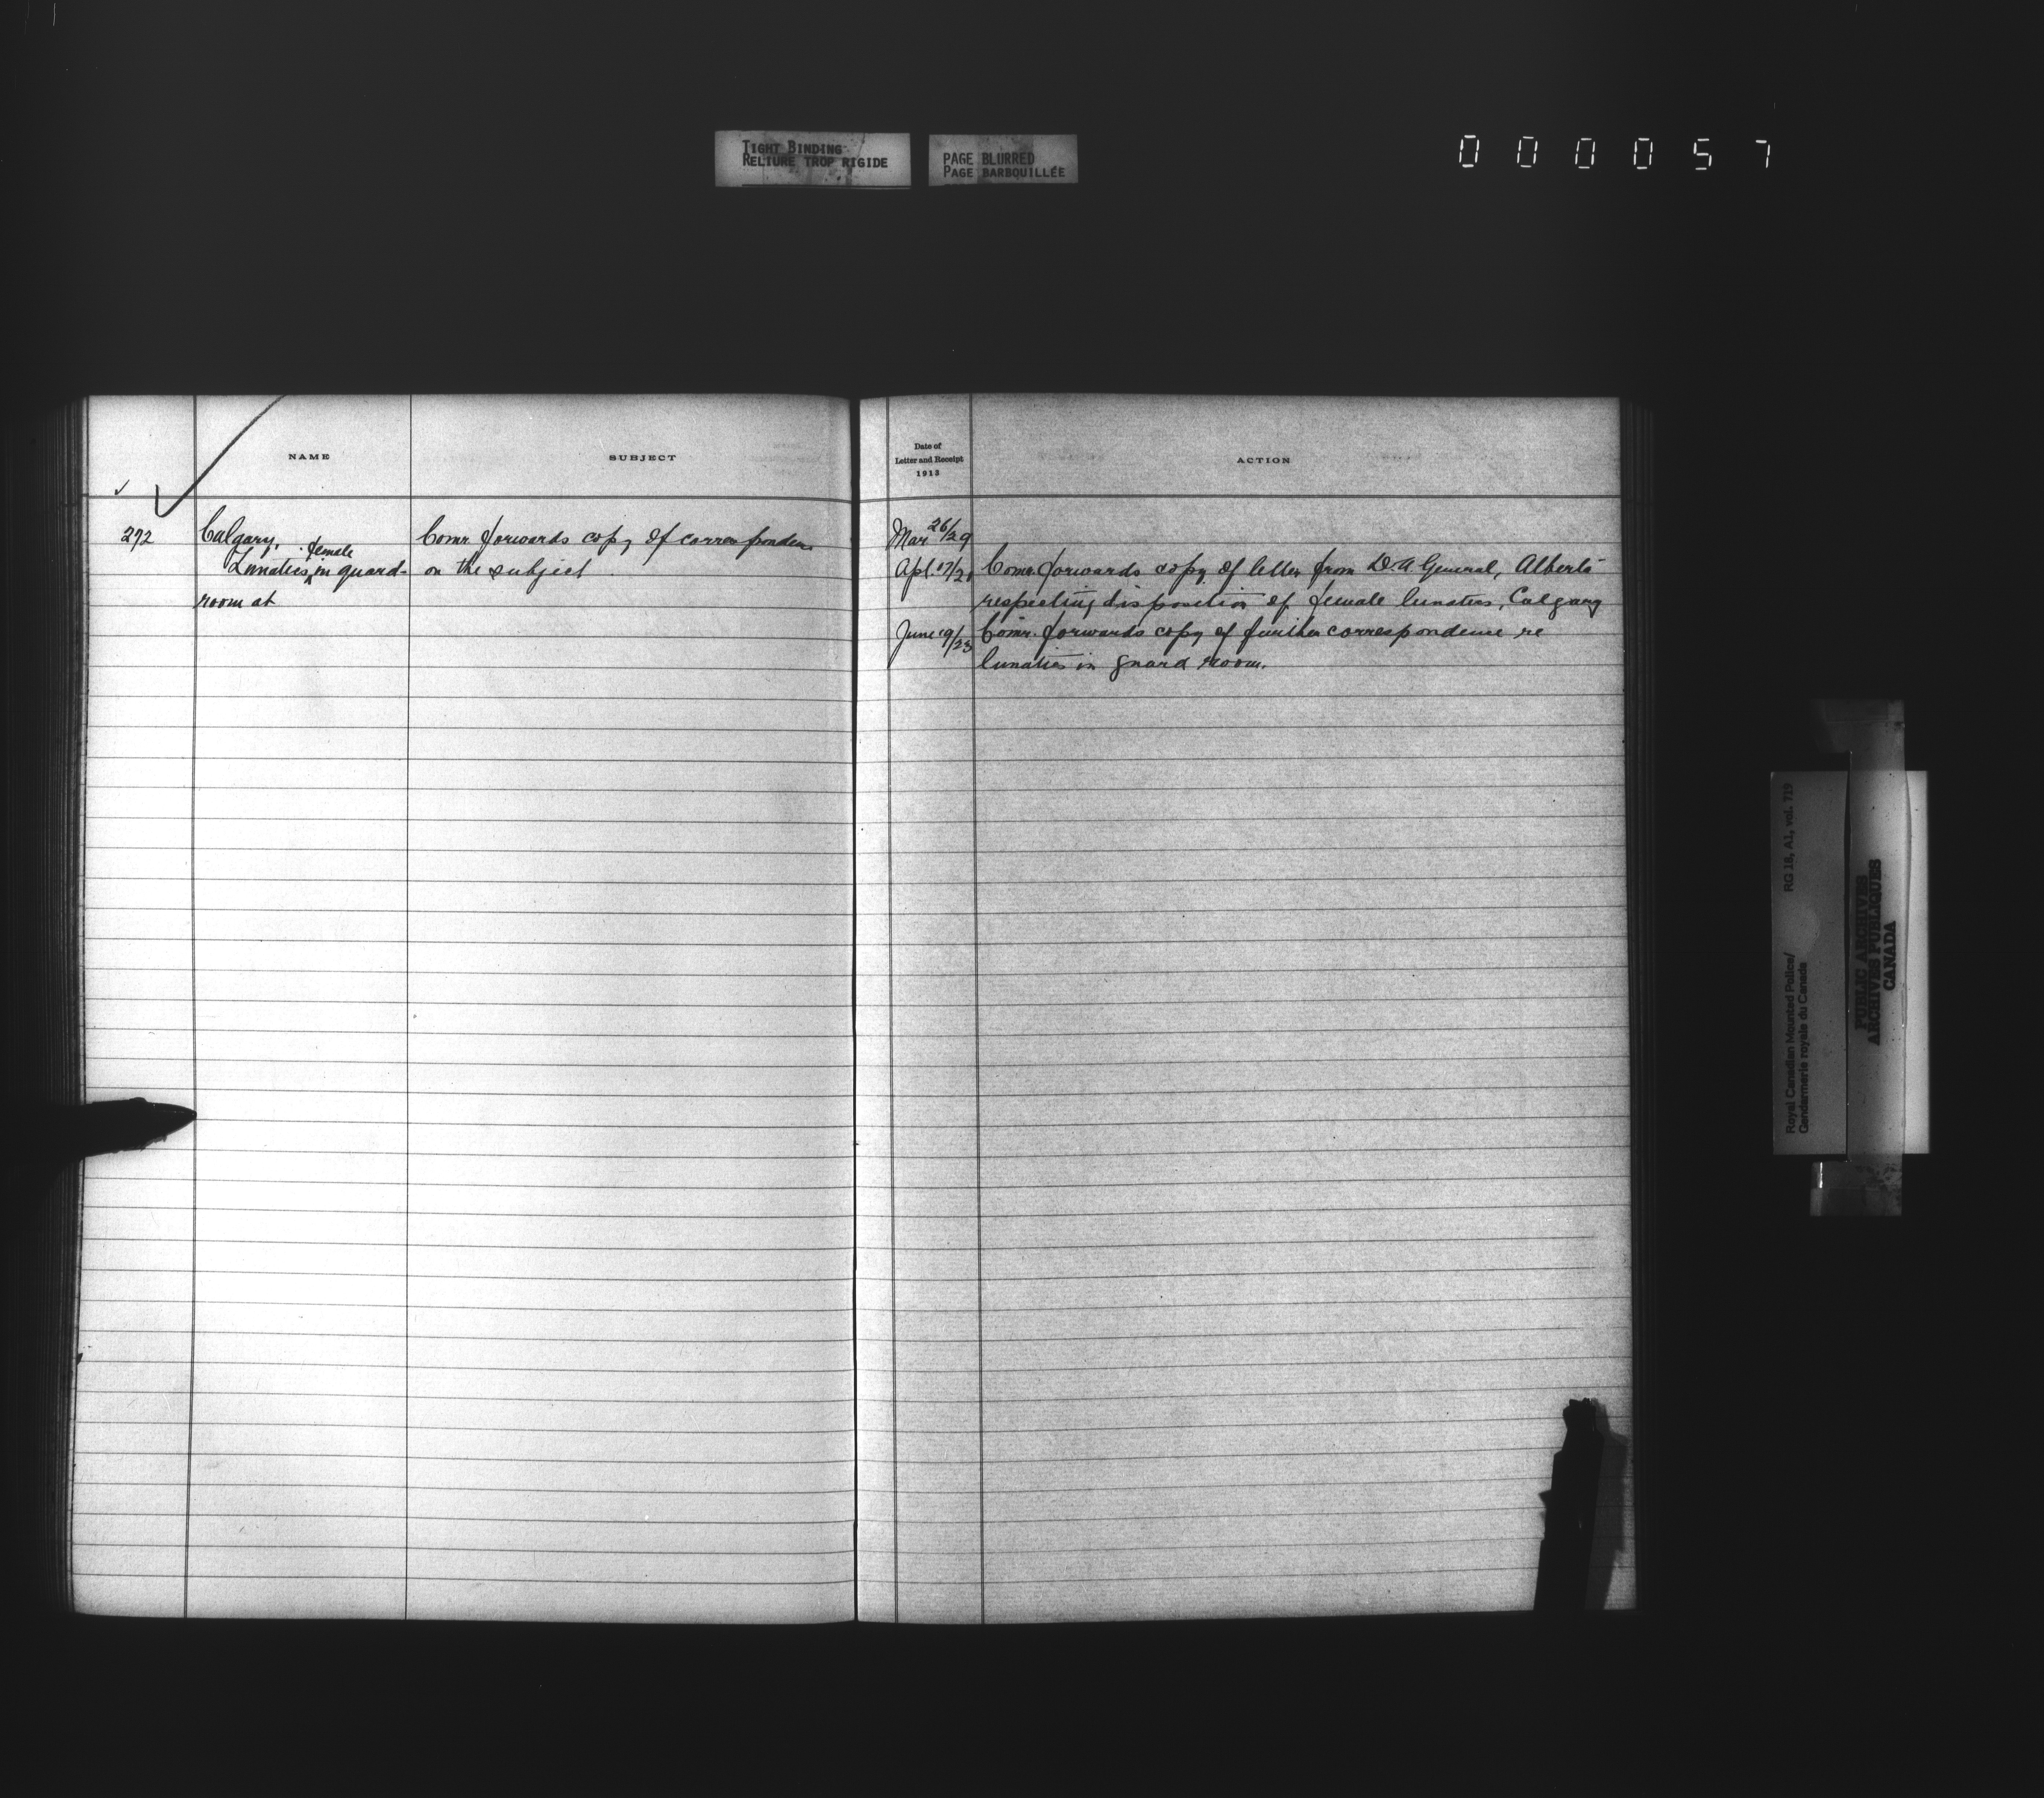 TIGHT BINDING
RELIURE TROP RIGIDE
PAGE BLURRED
PAGE BARBOUILLÉE
000057
NAME
SUBJECT
Date of
Letter and Receipt
1913
ACTION
272
Calgary,
female
Lunatics in guard-
room at
Comr. forwards copy of correspondence
on the subject
Mar. 26/29
Apl. 17/21
Comr. forwards copy of letter from D.A. General, Alberta
respecting disposition of female lunatics, Calgary
June 19/23
Comr. forwards copy of further correspondence re
lunatics in guard room.
Royal Canadian Mounted Police/
Gendarmerie royale du Canada
RG 18, A1, vol. 719
PUBLIC ARCHIVES
ARCHIVES PUBLIQUES
CANADA